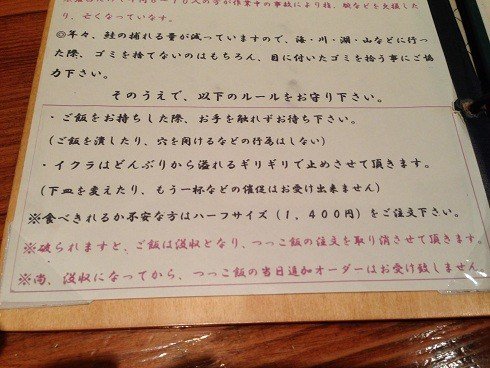 り、亡くなっています。
◎年々、鮭の捕れる量が減っていますので、海・川・湖・山などに行っ
た際、ゴミを捨てないのはもちろん、目に付いたゴミを拾う事にご協
力下さい。
そのうえで、以下のルールをお守り下さい。
・ご飯をお持ちした際、お手を触れずお待ち下さい。
(ご飯を潰したり、穴を開けるなどの行為はしない)
・イクラはどんぶりから溢れるギリギリで止めさせて頂きます。
(下皿を変えたり、もう一杯などの催促はお受け出来ません)
※食べきれるか不安な方はハーフサイズ(1,400円)をご注文下さい。
※破られますと、ご飯は没収となり、つっこ飯の注文を取り消させて頂きます。
※尚、没収になってから、つっこ飯の当日追加オーダーはお受け致しません